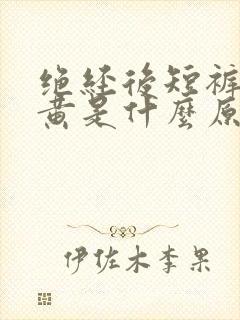 绝经後短裤
黄是什麽原
伊佐木李果